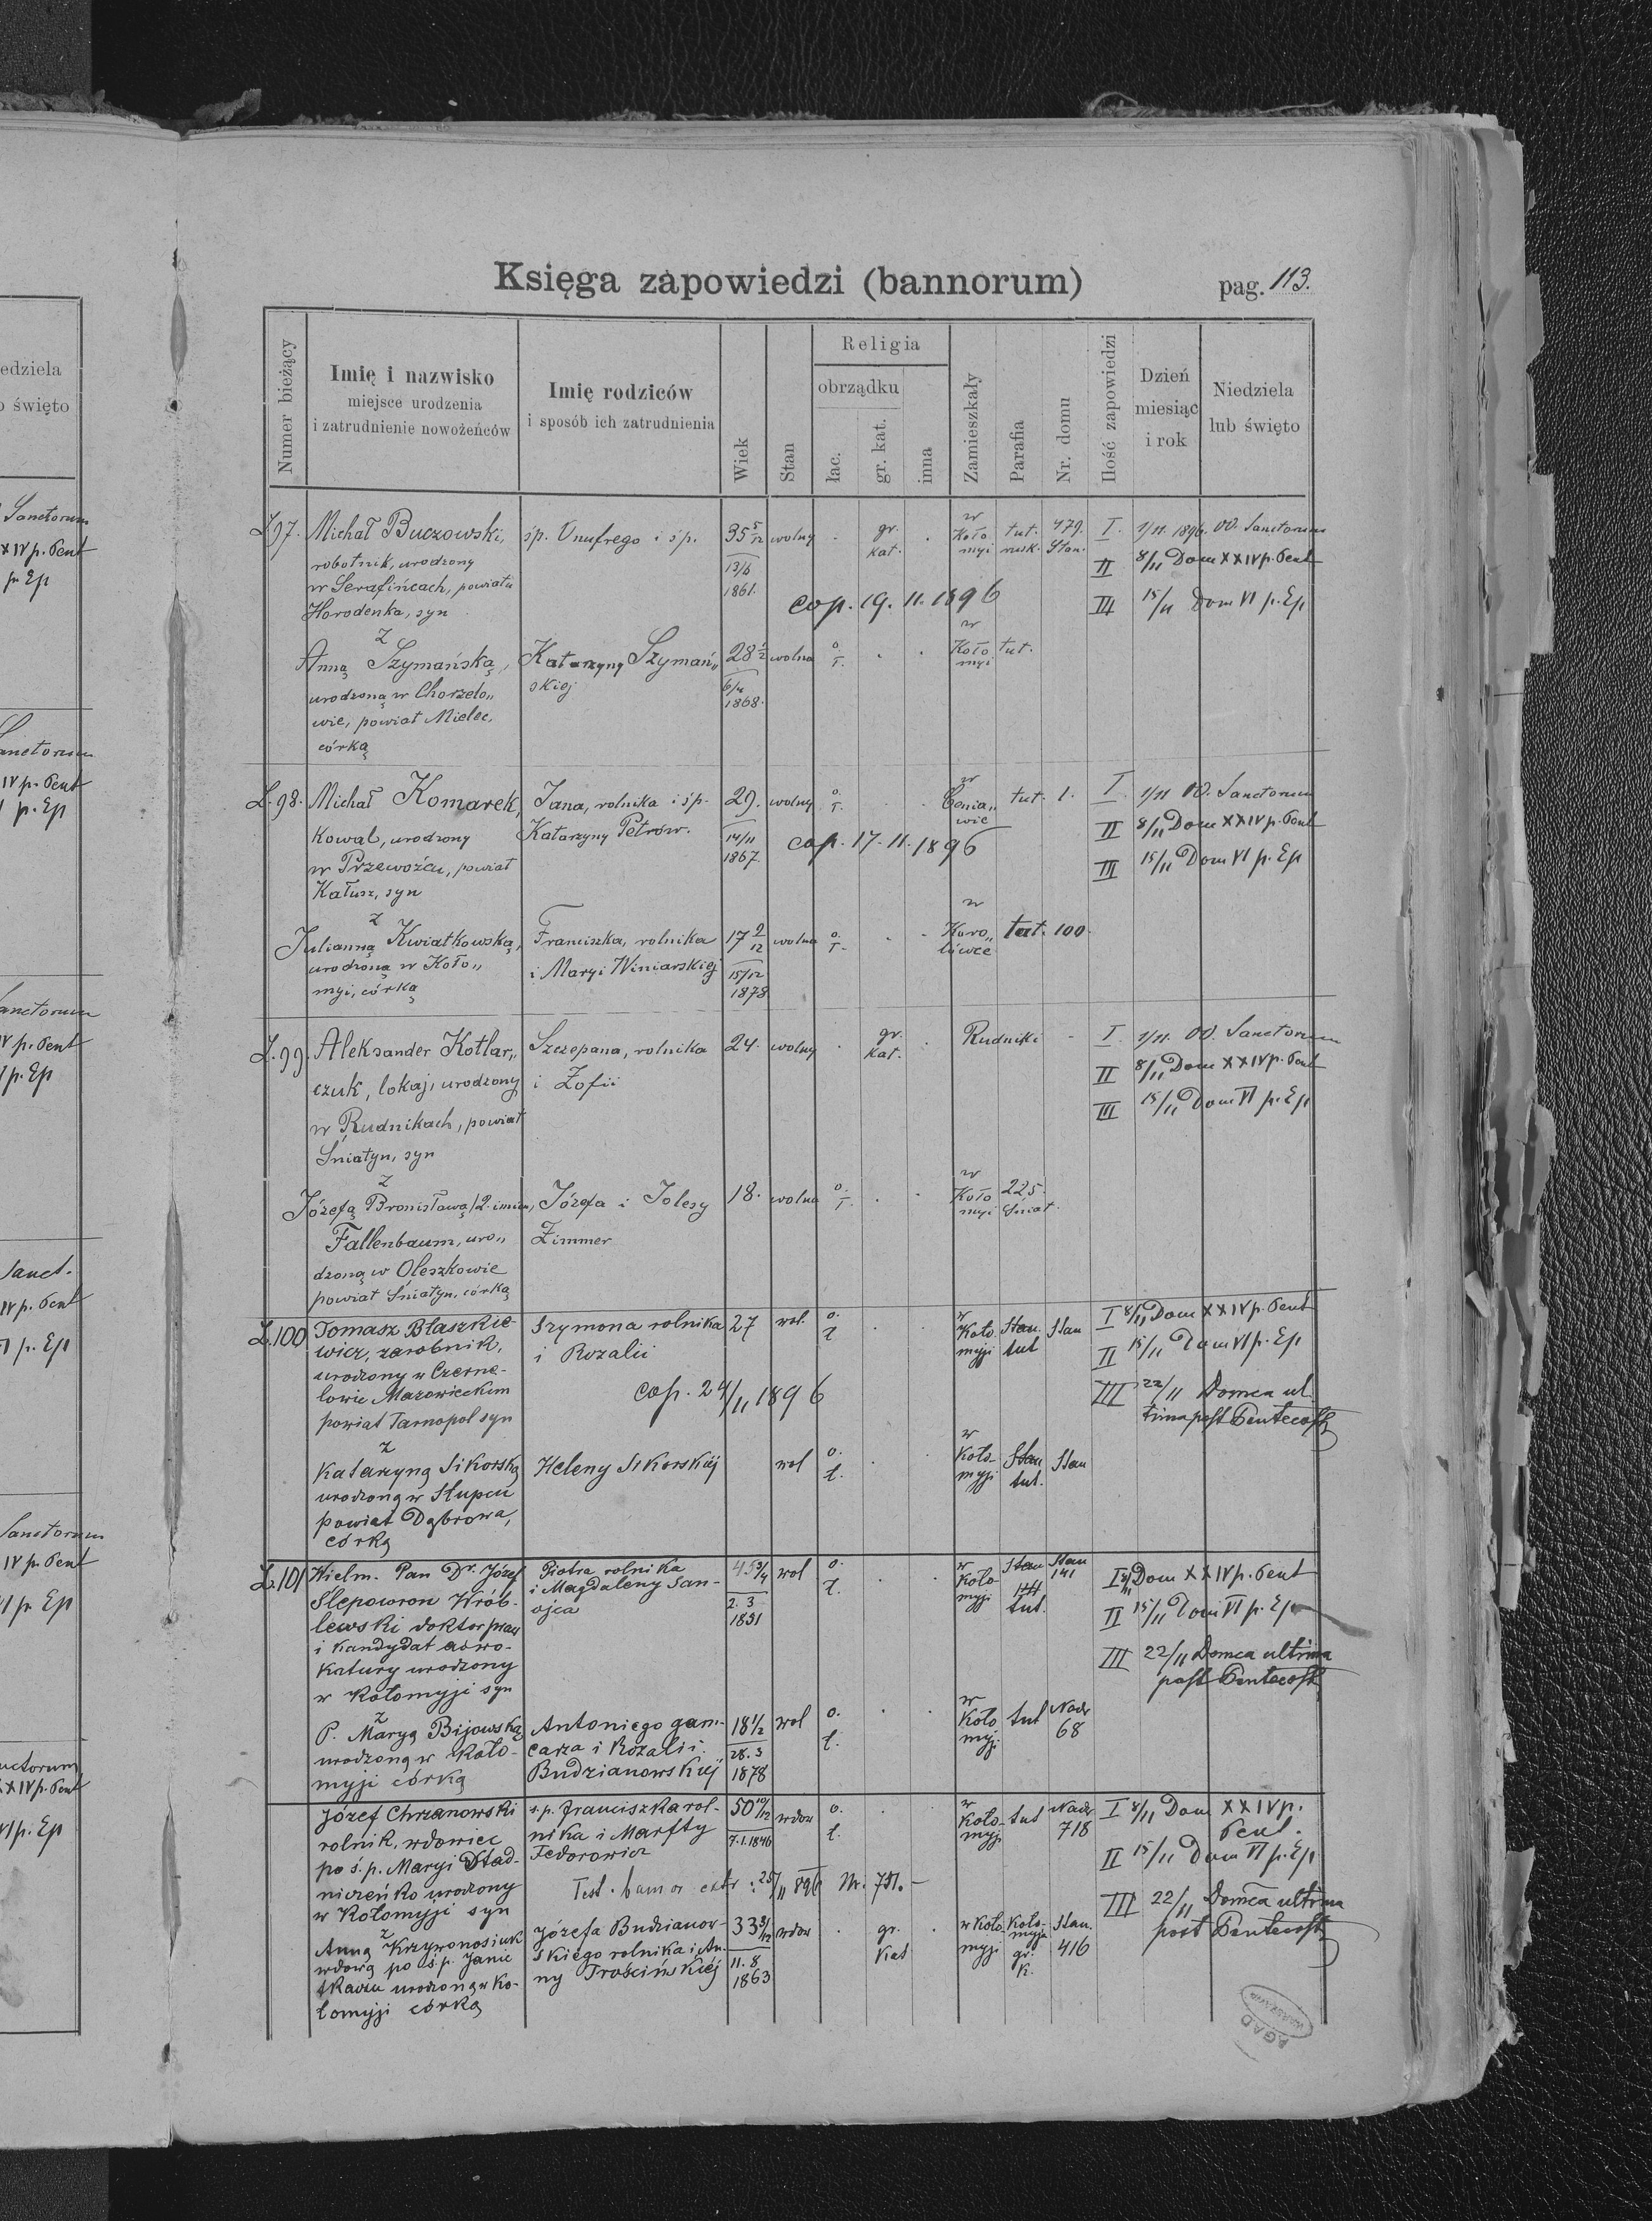 Księga zapowiedzi (bannorum)
pag. 113.
Numer bieżący
Imię i nazwisko
miejsce urodzenia
i zatrudnienie nowożeńców
Imię rodziców
i sposób ich zatrudnienia
Wiek
Stan
Religia
obrządku
łac.
gr. kat.
inna
Zamieszkały
Parafia
Nr. domu
Ilość zapowiedzi
Dzień
miesiąc
i rok
Niedziela
lub święto
L.97. Michał Buczowski, śp. Onufrego i śp. 35 5/12 wolny - gr. kat. . w Koło myi tut. rusk. 479. Stan. I. 1/11. 1896. OO. Sanctorum
robotnik, urodzony 13/6 II 8/11 Dom XXIV p. Pent
w Serafińcach, powiatu 1861. III 15/11 Dom VI p. Ep
Horodenka, syn cop. 19. 11. 1896
z
Anną Szymańską, Katarzyny Szymań„ 28 1/2 wolna o. ł. . . w Koło myi tut.
urodzoną w Chorzelo„ skiej 6/4
wie, powiat Mielec, 1868.
córką
L.98. Michał Komarek, Jana, rolnika i śp. 29. wolny o. ł. . w Cenia„ wie tut. 1. I 1/11 OO. Sanctorum
Kowal, urodzony Katarzyny Petrów. 14/11 cop. 17. 11. 1896 II 8/11 Dom XXIV p. Pent
w Przewoźcu, powiat 1867. III 15/11 Dom VI p. Ep
Kałusz, syn
z
Julianną Kwiatkowską, Franciszka, rolnika 17 2/12 wolna o. ł. . . w Koro„ lówce tut. 100.
urodzoną w Koło„ i Maryi Winiarskiej 15/12
myi, córką 1878
L.99. Aleksander Kotlar„ Szczepana, rolnika 24. wolny . gr. kat. . Rudniki - I 1/11. OO. Sanctorum
czuk, lokaj, urodzony i Zofii II 8/11 Dom XXIV p. Pent
w Rudnikach, powiat III 15/11 Dom VI p. Ep
Śniatyn, syn
z
Józefą Bronisławą /2. imien, Józefa i 18. wolna o. ł. . . w Koło myi 225. Śniat.
Fallenbaum, uro„ Zimmer
dzoną w Oleszkowie
powiat Śniatyn, córką
L.100 Tomasz Błaszkie- Szymona rolnika 27 wol. o. ł . w Koło. myji Stan. tut Stan I 8/11 Dom XXIV p. Pent
wicz, zarobnik, i Rozalii II 15/11 Dom VI p. Ep
urodzony w Czerne-
lowie Mazowieckim cop. 24/11 1896 III 22/11 Domca ul
powiat Tarnopol syn tima post Pentecost
z
Katarzyną Sikorską Heleny Sikorskiej wol o. ł. . . w Koło- myji Stan tut. Stan
urodzoną w Słupcu
powiat Dąbrowa,
córką
L.101 Wielm. Pan Dr. Józef Piotra rolnika 45 3/4 wol o. ł. . . w Koło- myji Stan tut. Stan 141 I 8/11 Dom XXIV p. Pent
Slepowron Wrób- i Magdaleny San- 2. 3 II 15/11 Dom VI p. Ep
lewski doktor praw ojca 1851
i kandydat adwo- III 22/11 Domca ultima
katury urodzony post Pentecost
w Kołomyji syn
z
P. Maryą Bijowską Antoniego garn- 18 1/2 wol o. ł. . . w Koło myji tut Nadr 68
urodzoną w Koło- carza i Rozalii 28. 3
myji córką Budzianowskiej 1878
Józef Chrzanowski s.p. Franciszka rol- 50 10/12 wdow o. ł. . w Koło- myji tut Nadr 718 I 8/11 Dom XXIV p. Pent.
rolnik, wdowiec nika i Marfty 7.1.1846
po ś.p. Maryi Stad- Fedorowicz II 15/11 Dom VI p. Ep
niczeńko urodzony Test. bannor extr: 25/11 896 Nr. 751. -
w Kołomyji syn III 22/11 Domca ultima
z post Pentecost
Anną Krzywonosiuk Józefa Budzianow- 33 3/12 wdow . gr. Kat . w Koło myji Koło- myja gr. K. Stan. 416
wdową po ś.p. Janie skiego rolnika i An-
tkaczu urodzoną w Ko- ny Trościńskiej 11. 8
łomyji córką 1863
AGAD
WARSZAWA
edziela
o święto
Sanctorum
XIV p. Pent
p. Ep